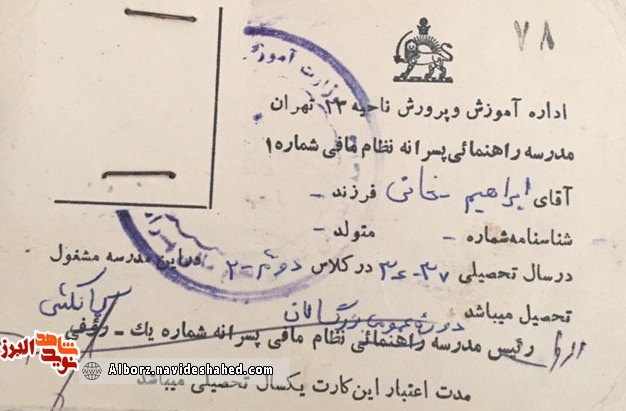 ۷۸
اداره آموزش و پرورش ناحیه ۲۳ تهران
مدرسه راهنمائی پسرانه نظام مافی شماره ۱
آقای ابراهیم فرزند -
شناسنامه شماره - متولد -
در سال تحصیلی ۳۷-۳۶ در کلاس ۲ در این مدرسه مشغول
تحصیل میباشد
دوره عمومی بزرگسالان
رئیس مدرسه راهنمائی نظام مافی پسرانه شماره یک - رئوفی
مدت اعتبار این کارت یکسال تحصیلی میباشد
وزارت آموزش
نوید شاهد البرز
Alborz.navideshahed.com